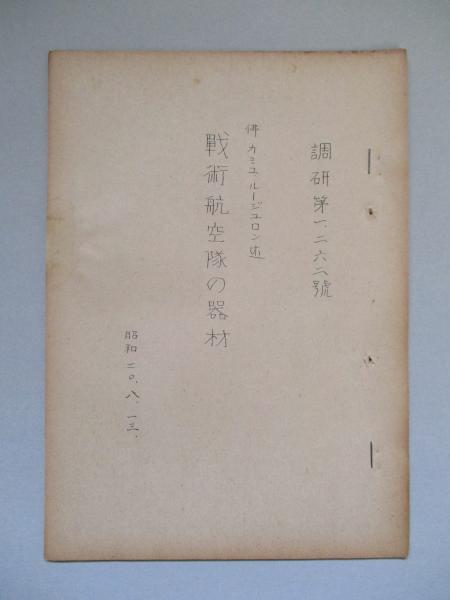 調研第一、二六二號
佛 カミユ ルージユロン述
戦術航空隊の器材
昭和 二〇、八、一三、